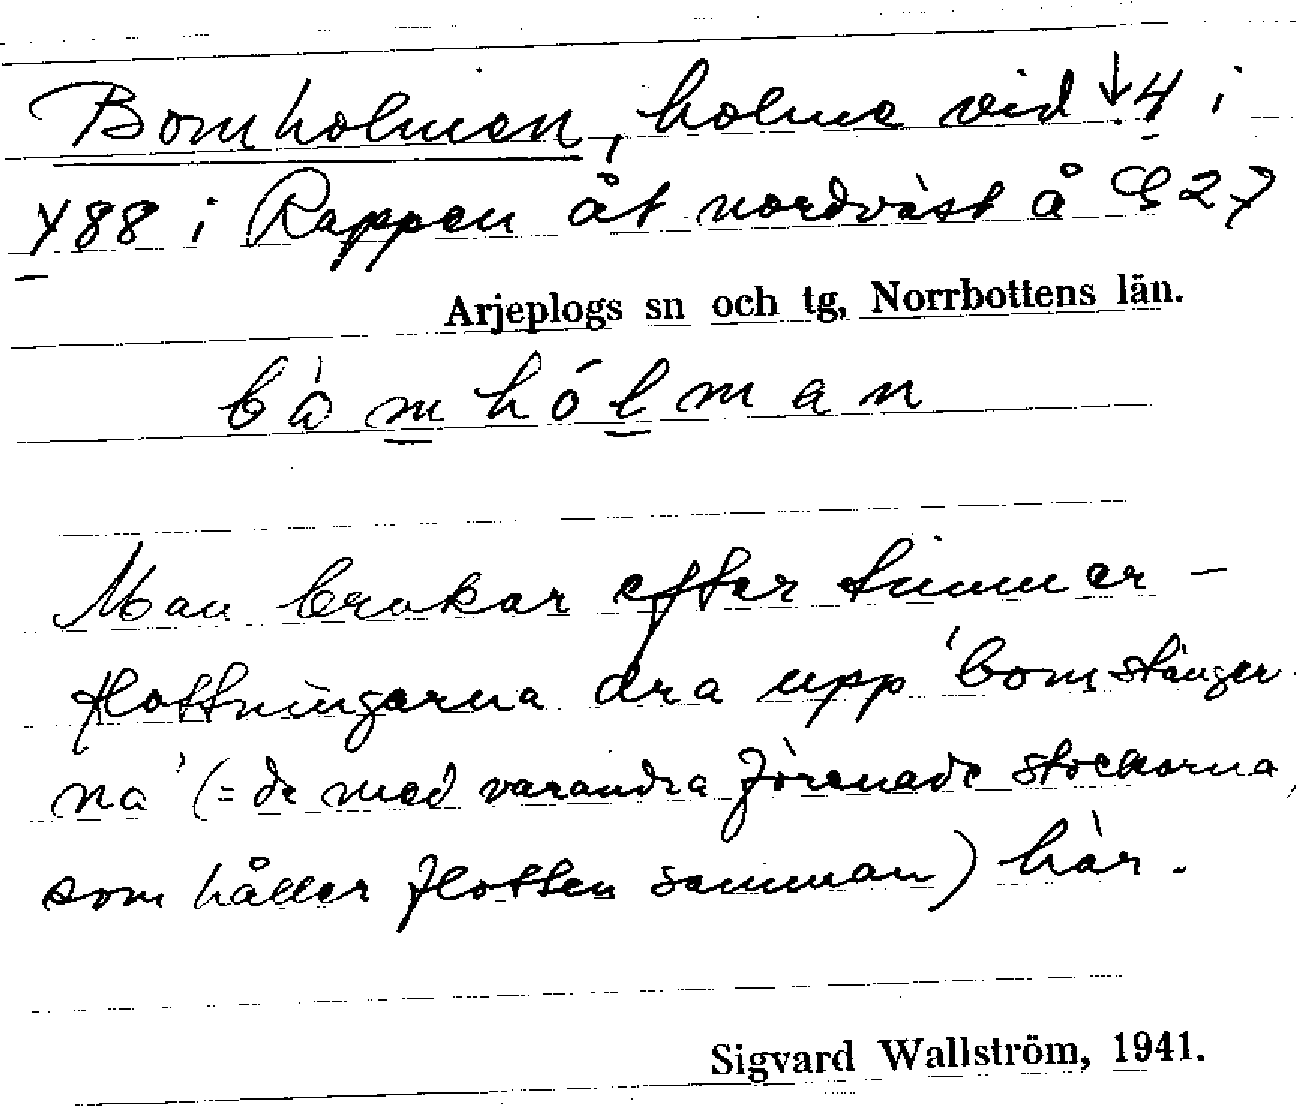 Bomholmen, holme vid ↓4 i
Y88 i Rappen åt nordväst å G27
Arjeplogs sn och tg, Norrbottens län.
båmhólman
Man brukar efter timmer-
flottningarna dra upp 'bomstänger
na' (= de med varandra förenade stockarna,
som håller flotten samman) här.
Sigvard Wallström, 1941.